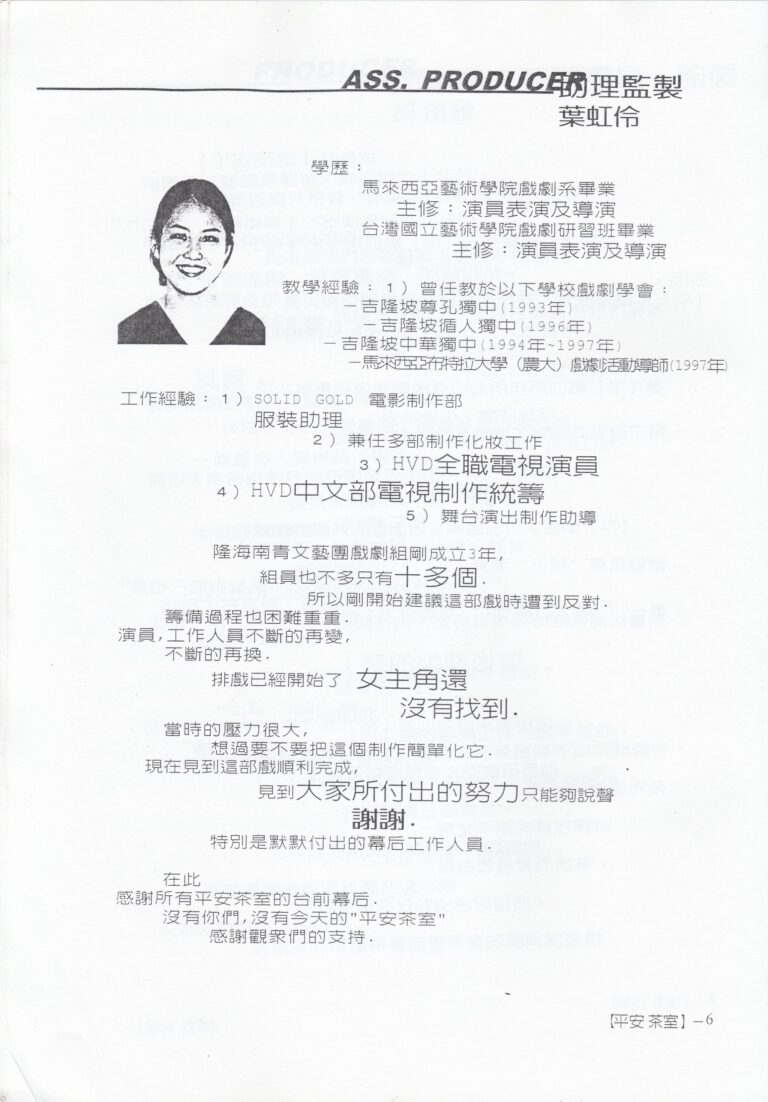 ASS. PRODUCER助理監製
葉虹伶
學歷：
馬來西亞藝術學院戲劇系畢業
主修：演員表演及導演
台灣國立藝術學院戲劇研習班畢業
主修：演員表演及導演
教學經驗：1）曾任教於以下學校戲劇學會：
－吉隆坡尊孔獨中(1993年)
－吉隆坡循人獨中(1996年)
－吉隆坡中華獨中(1994年~1997年)
－馬來西亞布特拉大學（農大）戲劇活動導師(1997年)
工作經驗：1）SOLID GOLD 電影制作部
服裝助理
2）兼任多部制作化妝工作
3）HVD全職電視演員
4）HVD中文部電視制作統籌
5）舞台演出制作助導
隆海南青文藝團戲劇組剛成立3年,
組員也不多只有十多個.
所以剛開始建議這部戲時遭到反對.
籌備過程也困難重重.
演員,工作人員不斷的再變,
不斷的再換.
排戲已經開始了 女主角還
沒有找到.
當時的壓力很大,
想過要不要把這個制作簡單化它.
現在見到這部戲順利完成,
見到大家所付出的努力只能夠說聲
謝謝.
特別是默默付出的幕后工作人員.
在此
感謝所有平安茶室的台前幕后.
沒有你們,沒有今天的"平安茶室"
感謝觀眾們的支持.
【平安茶室】－6